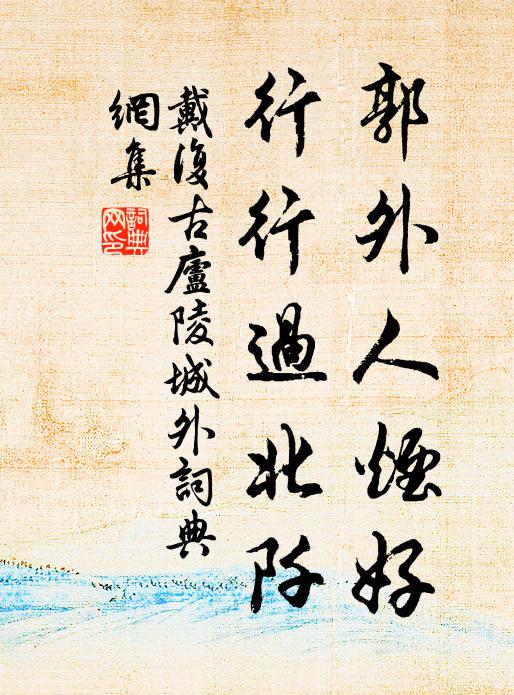 郭外人煙好
行行過北阡
戴復古廬陵城外詞典
網集
詞典
网印